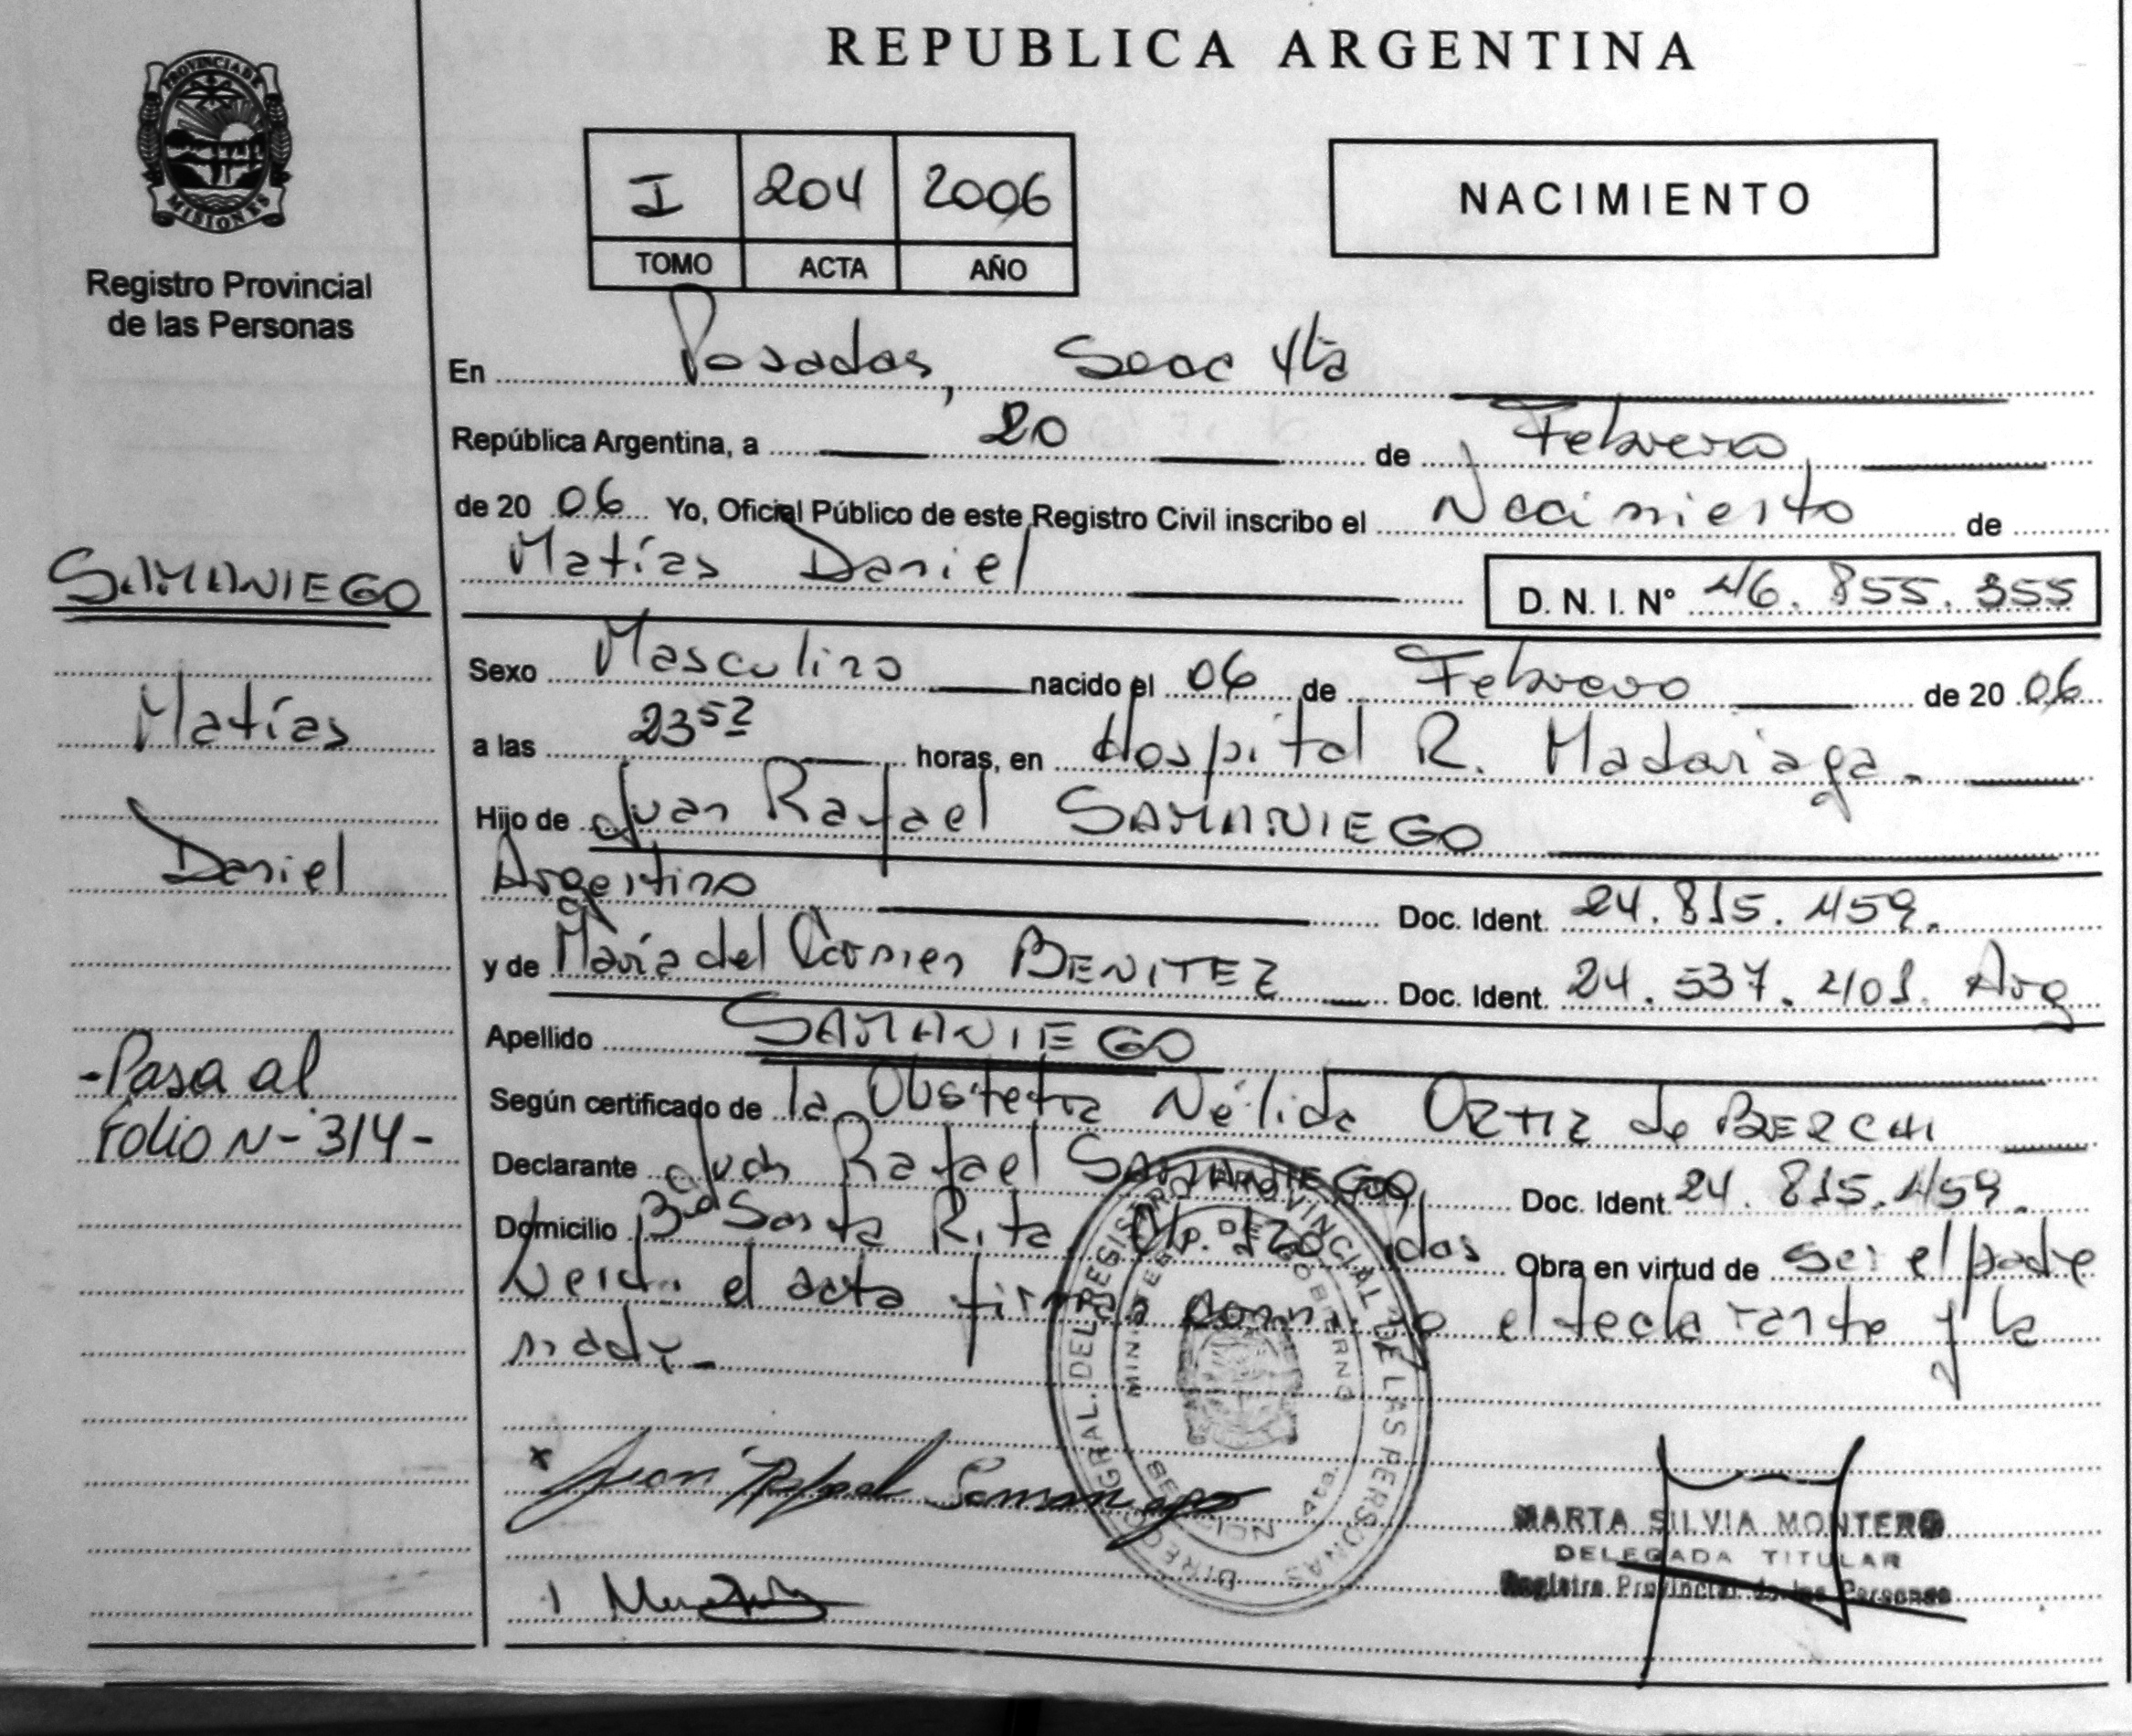 REPUBLICA ARGENTINA
PROVINCIA DE
MISIONES
Registro Provincial
de las Personas
I 204 2006
TOMO ACTA AÑO
NACIMIENTO
En Posadas, Secc 4ta
República Argentina, a 20 de Febrero
de 20 06 Yo, Oficial Público de este Registro Civil inscribo el Nacimiento de
Matías Daniel
D. N. I. N° 46.855.355
Sexo Masculino nacido el 06 de Febrero de 20 06
a las 23 52 horas, en Hospital R. Madariaga.
Hijo de Juan Rafael SAMANIEGO
Argentino Doc. Ident. 24.815.459.
y de María del Carmen BENITEZ Doc. Ident. 24.537.401. Arg
Apellido SAMANIEGO
Según certificado de la Obstetra Nélida ORTIZ de BERCHI
Declarante Juan Rafael SAMANIEGO Doc. Ident. 24.815.459.
Domicilio Bº Santa Rita Obra en virtud de ser el padre
el acta el declarante y la
madre
SAMANIEGO
Matías
Daniel
-Pasa al
Folio N- 314-
DIREC. GRAL. DEL REGISTRO PROVINCIAL DE LAS PERSONAS
MINISTERIO DE GOBIERNO
Juan Rafael Samaniego
MARTA SILVIA MONTERO
DELEGADA TITULAR
Registro Provincial de las Personas